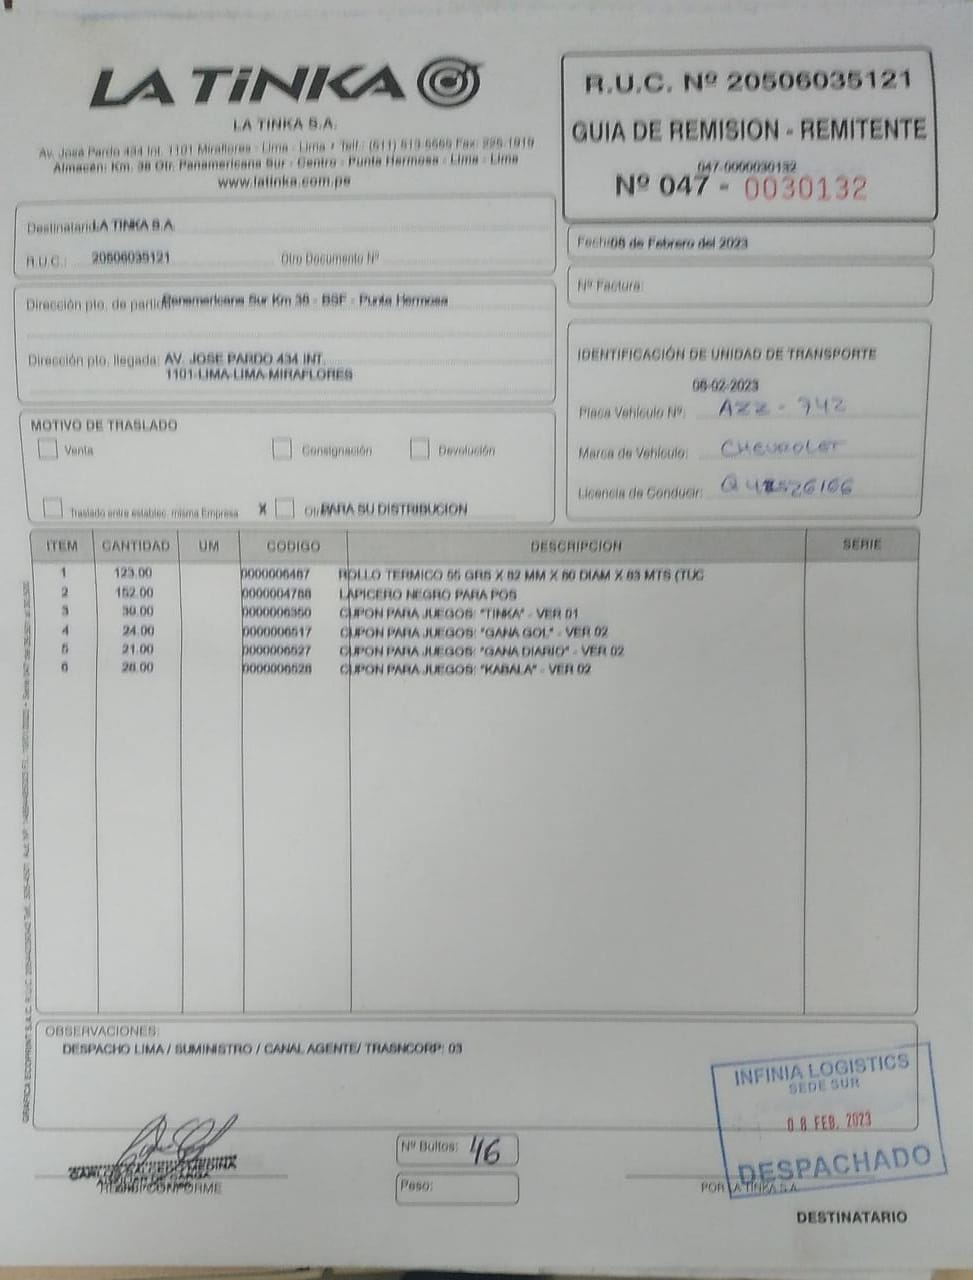 LA TiNKA
LA TINKA S.A.
Av. José Pardo 434 Int. 1101 Miraflores - Lima - Lima
Almacen: Km. 38 Otr. Panamericana Sur - Centro - Punta Hermosa - Lima - Lima
www.latinka.com.pe
R.U.C. Nº 20506035121
GUIA DE REMISION - REMITENTE
047-0000030132
Nº 047 - 0030132
Destinatario: LA TINKA S.A.
R.U.C.: 20506035121 Otro Documento Nº
Fecha: 08 de Febrero del 2023
Nº Factura:
Dirección pto. de partida: Panamericana Sur Km 38 - BSF - Punta Hermosa
Dirección pto. llegada: AV. JOSE PARDO 434 INT.
1101-LIMA-LIMA-MIRAFLORES
IDENTIFICACIÓN DE UNIDAD DE TRANSPORTE
08-02-2023
Placa Vehículo Nº: AZZ - 742
Marca de Vehículo: CHEVROLET
Licencia de Conducir:
MOTIVO DE TRASLADO
Venta Consignación Devolución
Traslado entre establec. misma Empresa X Otr PARA SU DISTRIBUCION
ITEM CANTIDAD UM CODIGO DESCRIPCION SERIE
1 123.00 0000006487 ROLLO TERMICO 55 GRS X 82 MM X 60 DIAM X 63 MTS (TUC
2 152.00 0000004788 LAPICERO NEGRO PARA POS
3 30.00 0000006350 CUPON PARA JUEGOS: "TINKA" - VER 01
4 24.00 0000006517 CUPON PARA JUEGOS: "GANA GOL" - VER 02
5 21.00 0000006527 CUPON PARA JUEGOS: "GANA DIARIO" - VER 02
6 28.00 0000006528 CUPON PARA JUEGOS: "KABALA" - VER 02
OBSERVACIONES:
DESPACHO LIMA / SUMINISTRO / CANAL AGENTE/ TRASNCORP: 03
INFINIA LOGISTICS
SEDE SUR
08 FEB. 2023
DESPACHADO
Nº Bultos: 46
Peso:
RECIBI CONFORME
POR LA TINKA S.A.
DESTINATARIO